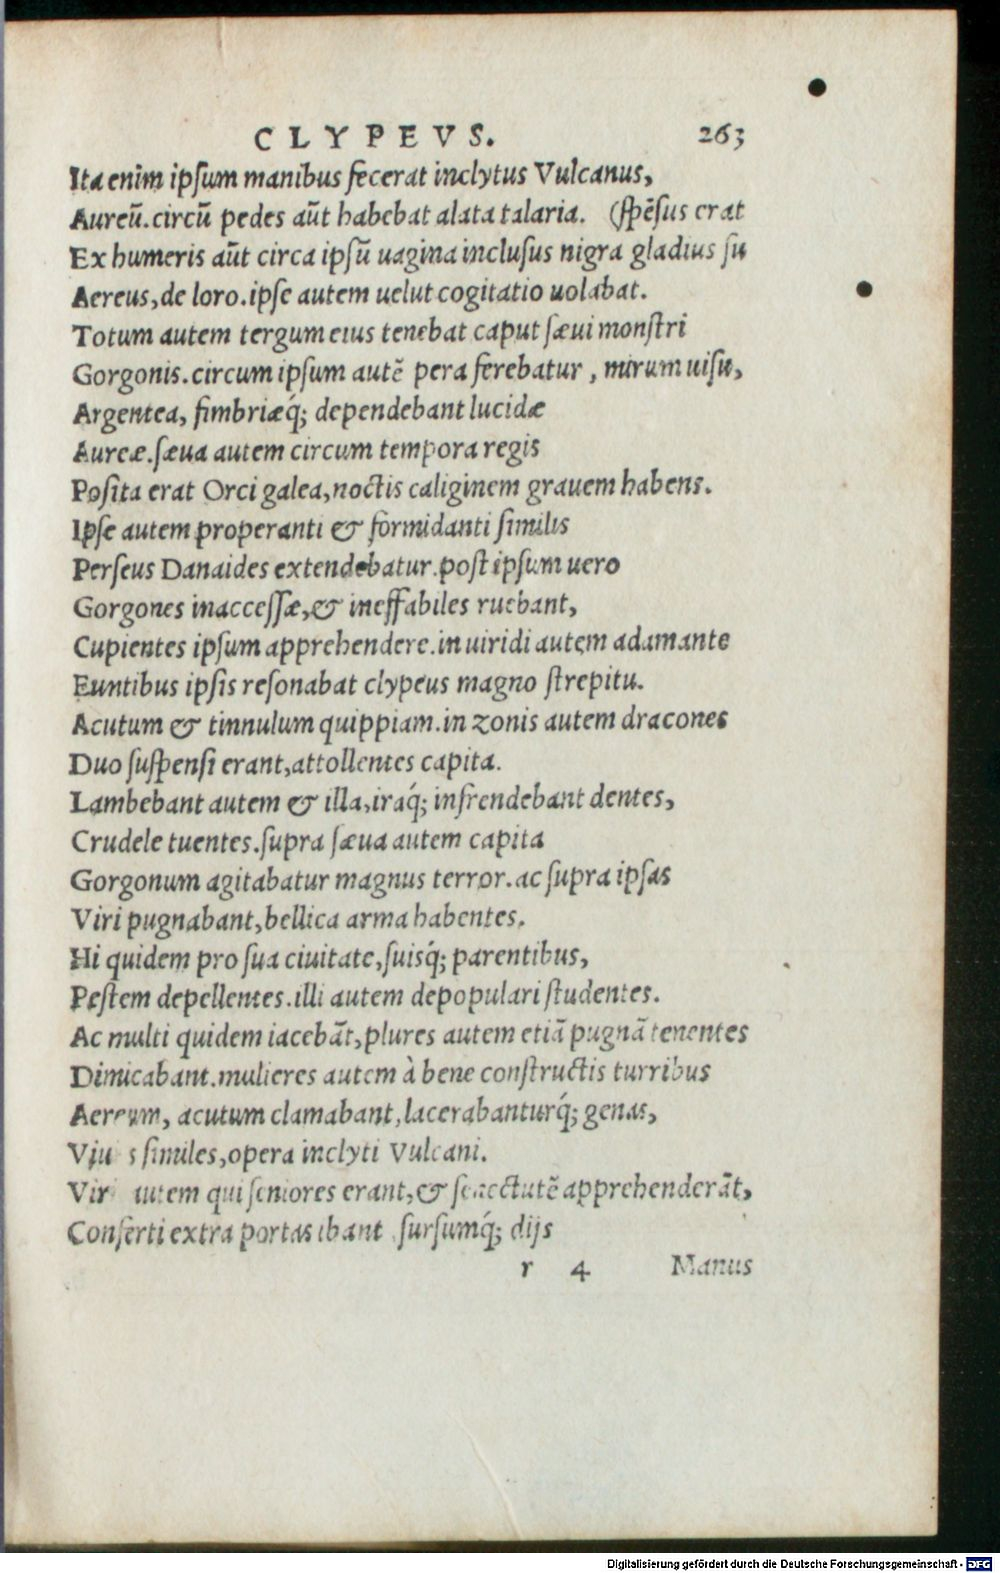 CLYPEVS. 263
Ita enim ipſum manibus fecerat inclytus Vulcanus,
Aureū. circū pedes aūt habebat alata talaria. (ſpēſus erat
Ex humeris aūt circa ipſū uagina incluſus nigra gladius ſu
Aereus, de loro. ipſe autem uelut cogitatio uolabat.
Totum autem tergum eius tenebat caput ſæui monſtri
Gorgonis. circum ipſum autē pera ferebatur, mirum uiſu,
Argentea, fimbriæq́; dependebant lucidæ
Aureæ. ſæua autem circum tempora regis
Poſita erat Orci galea, noctis caliginem grauem habens.
Ipſe autem properanti & formidanti ſimilis
Perſeus Danaides extendebatur. poſt ipſum uero
Gorgones inacceſſæ, & ineffabiles ruebant,
Cupientes ipſum apprehendere. in uiridi autem adamante
Euntibus ipſis reſonabat clypeus magno ſtrepitu.
Acutum & tinnulum quippiam. in zonis autem dracones
Duo ſuſpenſi erant, attollentes capita.
Lambebant autem & illa, iraq́; infrendebant dentes,
Crudele tuentes. ſupra ſæua autem capita
Gorgonum agitabatur magnus terror. ac ſupra ipſas
Viri pugnabant, bellica arma habentes.
Hi quidem pro ſua ciuitate, ſuisq́; parentibus,
Peſtem depellentes. illi autem depopulari ſtudentes.
Ac multi quidem iacebāt, plures autem etiā pugnā tenentes
Dimicabant. mulieres autem à bene conſtructis turribus
Aereum, acutum clamabant, lacerabanturq́; genas,
ſimiles, opera inclyti Vulcani.
Viri autem qui ſeniores erant, & ſenectutē apprehenderāt,
Conferti extra portas ibant ſurſumq́; dijs
r 4 Manus
Digitalisierung gefördert durch die Deutsche Forschungsgemeinschaft - DFG